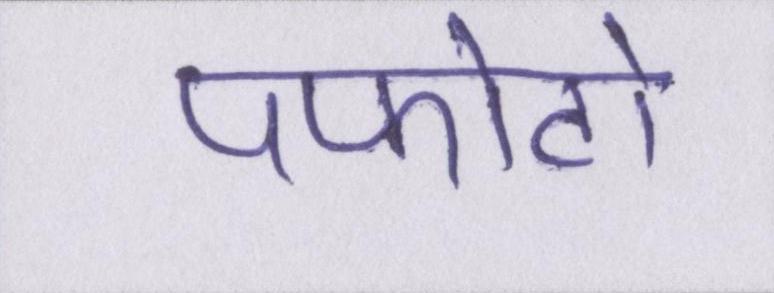 पफोटो